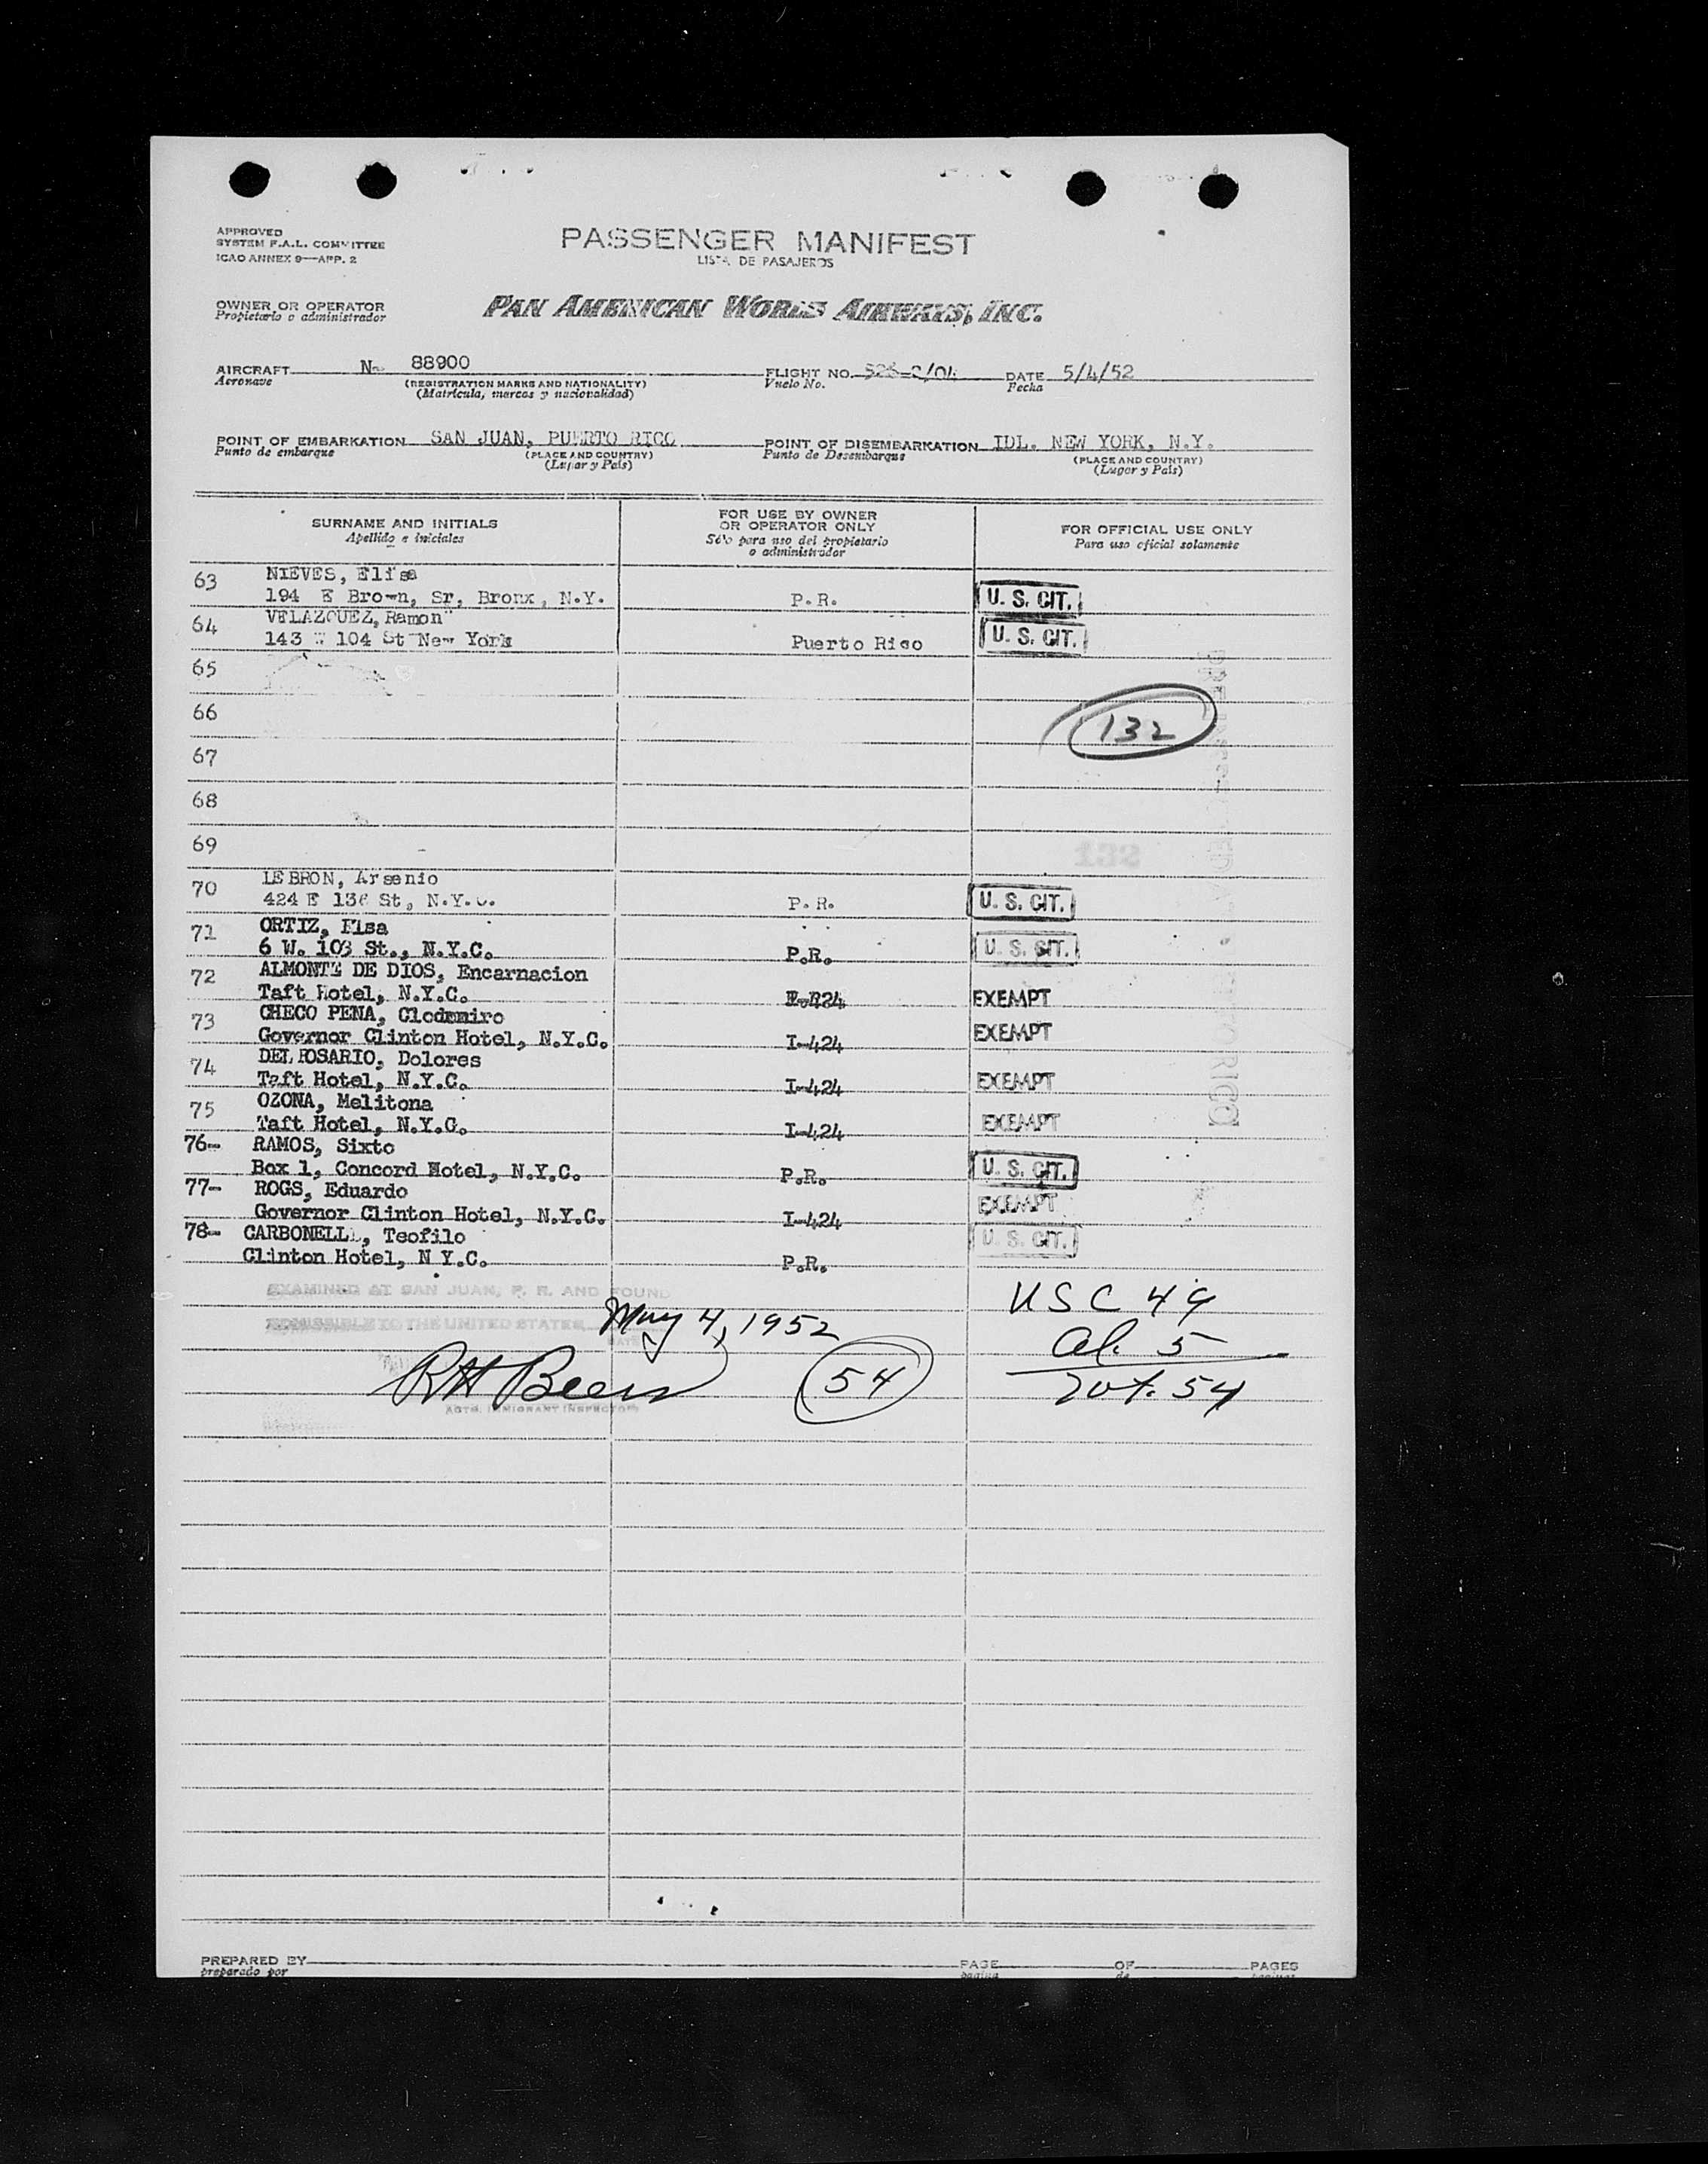 APPROVED
SYSTEM F.A.L. COMMITTEE
ICAO ANNEX 9—APP. 2
PASSENGER MANIFEST
LISTA DE PASAJEROS
OWNER OR OPERATOR
Propietario o administrador
PAN AMERICAN WORLD AIRWAYS, INC.
AIRCRAFT N- 88900
Aeronave
(REGISTRATION MARKS AND NATIONALITY)
(Matrícula, marcas y nacionalidad)
FLIGHT NO. 526-2/04
Vuelo No.
DATE 5/4/52
Fecha
POINT OF EMBARKATION SAN JUAN, PUERTO RICO
Punto de embarque
(PLACE AND COUNTRY)
(Lugar y País)
POINT OF DISEMBARKATION IDL. NEW YORK, N.Y.
Punto de Desembarque
(PLACE AND COUNTRY)
(Lugar y País)
SURNAME AND INITIALS
Apellido e iniciales
FOR USE BY OWNER
OR OPERATOR ONLY
Sólo para uso del propietario
o administrador
FOR OFFICIAL USE ONLY
Para uso oficial solamente
63 NIEVES, Elisa
194 E Brown, Sr, Bronx, N.Y. P.R. U. S. CIT.
64 VELAZQUEZ, Ramon
143 W 104 St New York Puerto Rico U. S. CIT.
65
66
132
67
68
69
132
70 LEBRON, Arsenio
424 E 136 St, N.Y.C. P.R. U. S. CIT.
71 ORTIZ, Elsa
6 W. 103 St., N.Y.C. P.R. U. S. CIT.
72 ALMONTE DE DIOS, Encarnacion
Taft Hotel, N.Y.C. EXEMPT
73 CHECO PENA, Clodomiro
Governor Clinton Hotel, N.Y.C. I-424 EXEMPT
74 DEL ROSARIO, Dolores
Taft Hotel, N.Y.C. I-424 EXEMPT
75 OZONA, Melitona
Taft Hotel, N.Y.C. I-424 EXEMPT
76- RAMOS, Sixto
Box 1, Concord Hotel, N.Y.C. P.R. U. S. CIT.
77- ROGS, Eduardo
Governor Clinton Hotel, N.Y.C. I-424 EXEMPT
78- CARBONELL, Teofilo
Clinton Hotel, N.Y.C. P.R. U. S. CIT.
EXAMINED AT SAN JUAN, P. R. AND FOUND
ADMISSIBLE TO THE UNITED STATES
May 4, 1952
RH Beers
ACTG. IMMIGRANT INSPECTOR
54
USC 49
Al. 5
Tot. 54
PREPARED BY
preparado por
PAGE OF PAGES
página de páginas